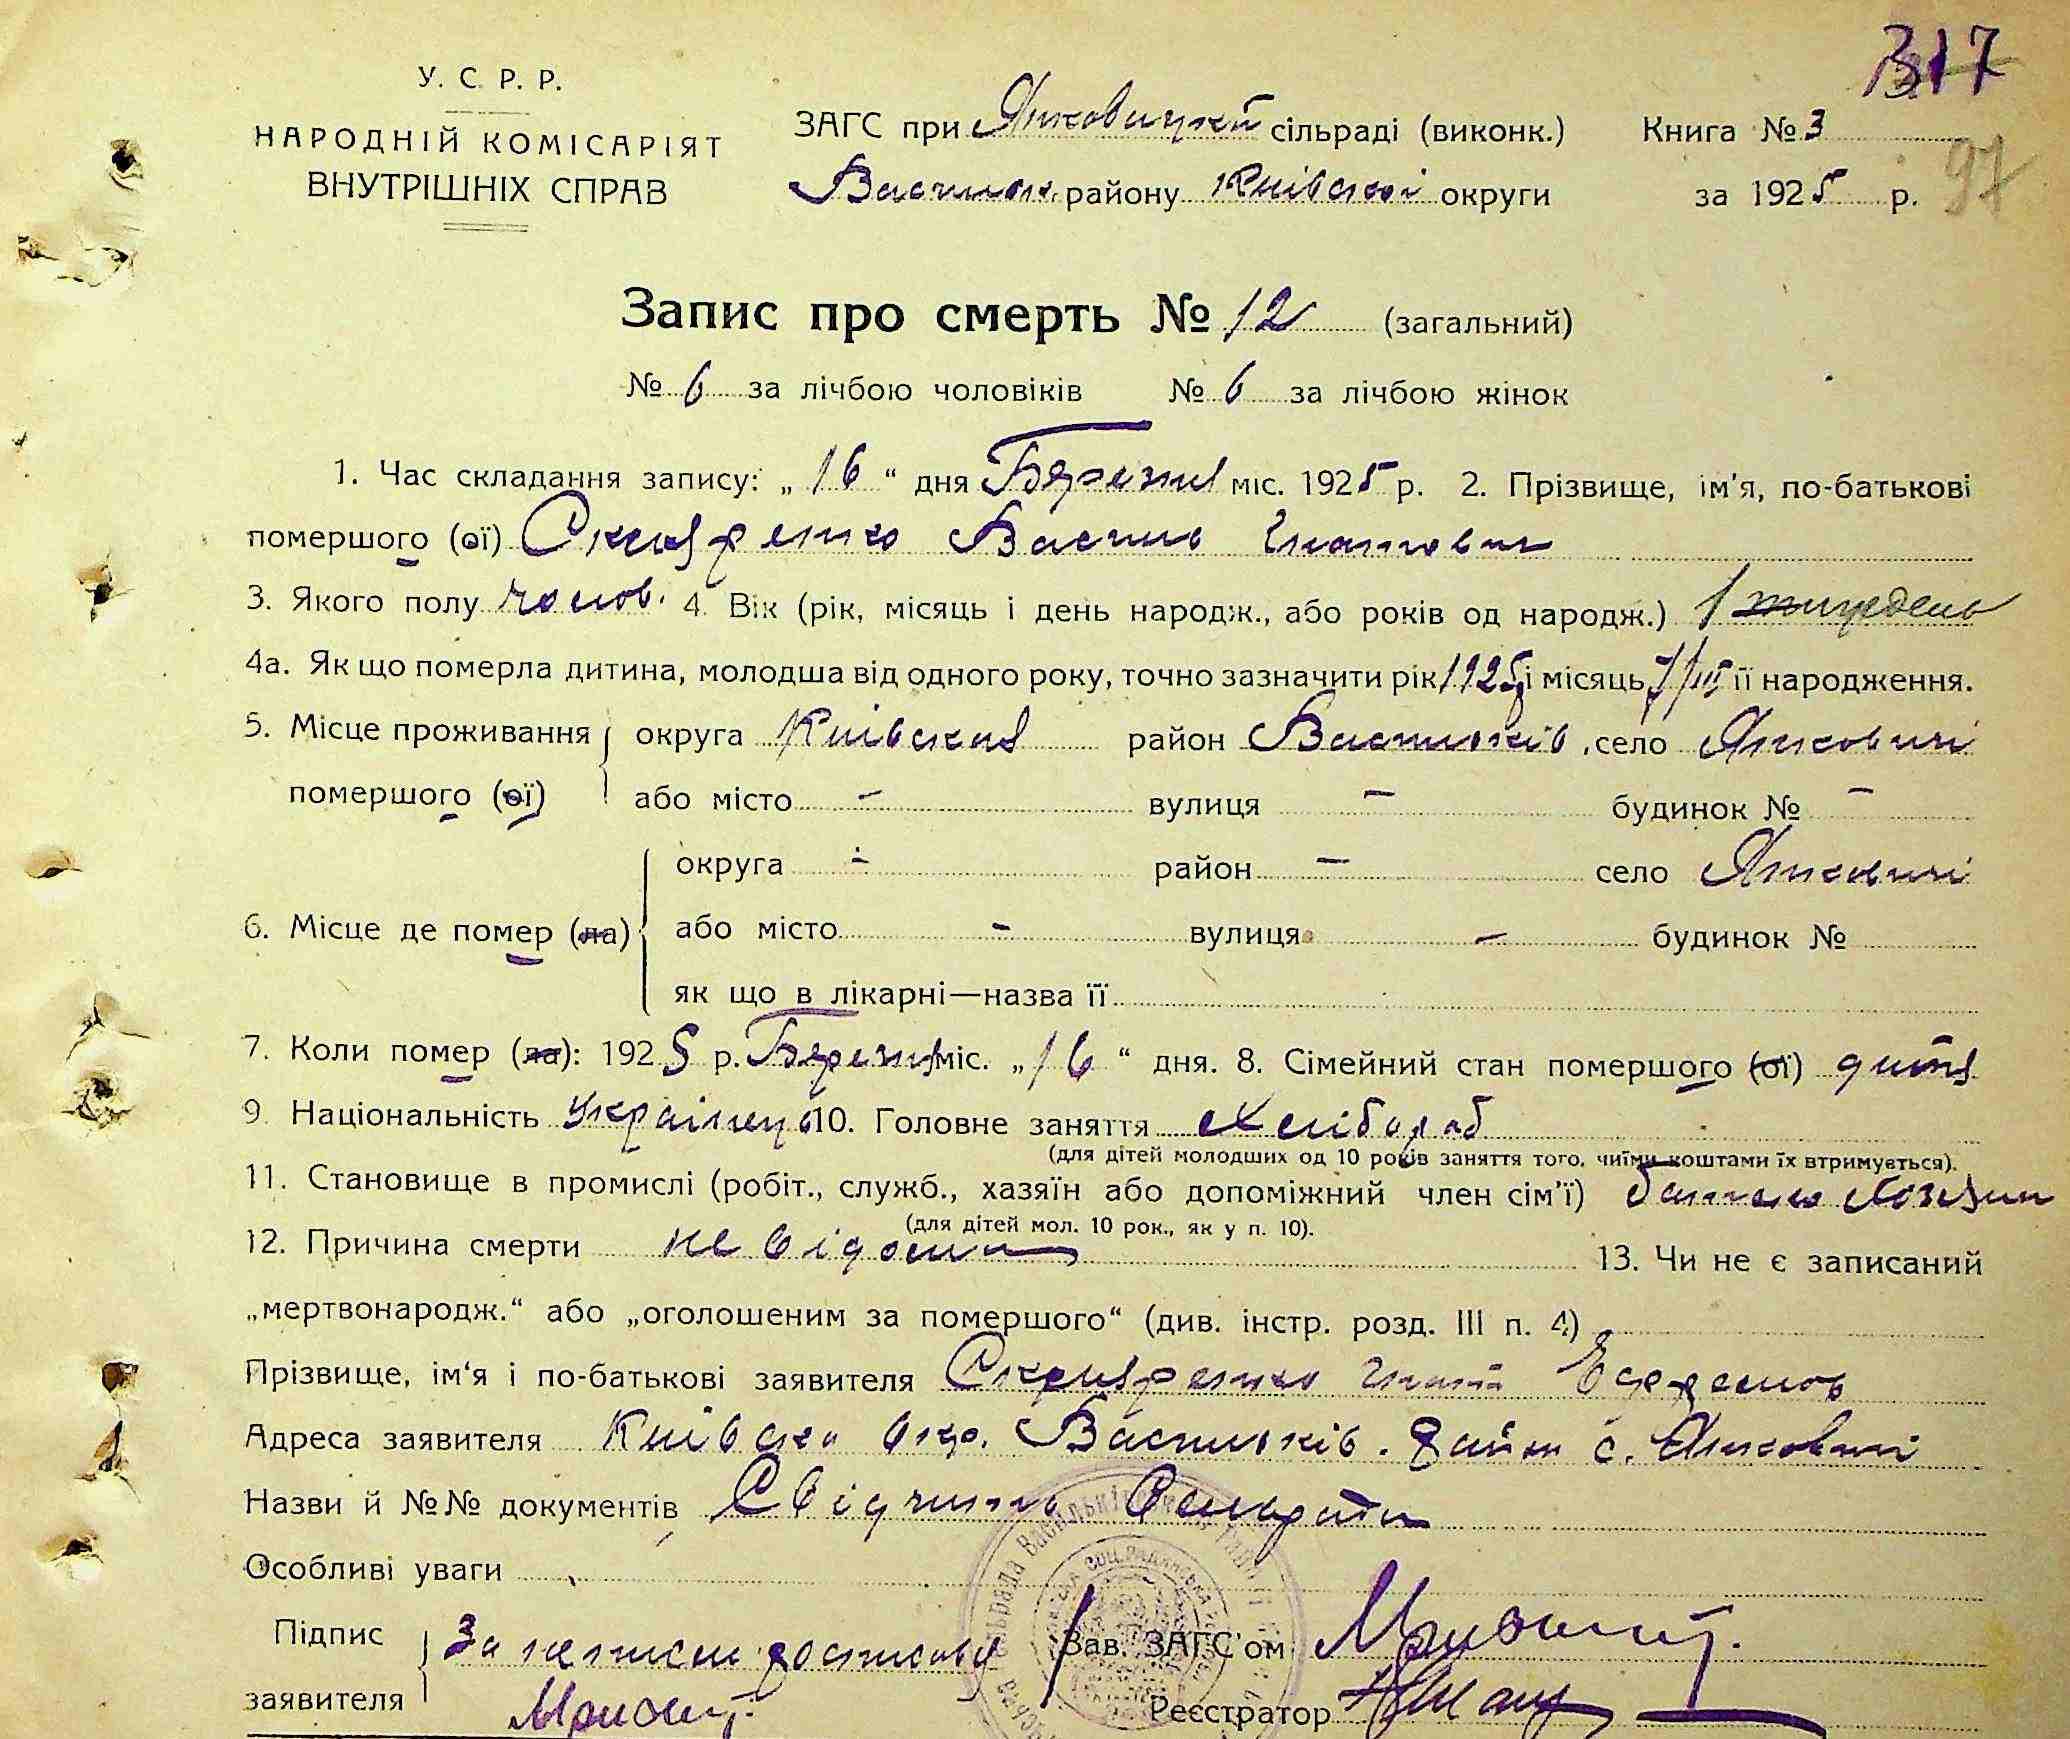 317
У. С. Р. Р.
НАРОДНІЙ КОМІСАРІЯТ
ВНУТРІШНІХ СПРАВ
ЗАГС при Янковицкій сільраді (виконк.)
Васильк. району Київської округи
Книга № 3
за 1925 р.
97
Запис про смерть № 12 (загальний)
№ 6 за лічбою чоловіків № 6 за лічбою жінок
1. Час складання запису: „16“ дня Березня міс. 1925 р. 2. Прізвище, ім'я, по-батькові
помершого (ої) Скляренко Василь Гнатович
3. Якого полу чолов. 4. Вік (рік, місяць і день народж., або років од народж.) 1 тиждень
4а. Як що померла дитина, молодша від одного року, точно зазначити рік 1925 і місяць 7/III її народження.
5. Місце проживання округа Київская район Васильків. село Янковичі
помершого (ої) або місто - вулиця - будинок № -
округа - район - село Янковичі
6. Місце де помер (ла) або місто - вулиця - будинок №
як що в лікарні—назва її
7. Коли помер (ла): 1925 р. Березня міс. „16“ дня. 8. Сімейний стан помершого (ої) дитя
9. Національність Українець 10. Головне заняття Хлібороб
(для дітей молодших од 10 років заняття того, чиїми коштами їх втримується).
11. Становище в промислі (робіт., служб., хазяїн або допоміжний член сім'ї) батько Хозяин
(для дітей мол. 10 рок., як у п. 10).
12. Причина смерти не відома 13. Чи не є записаний
„мертвонародж.“ або „оголошеним за помершого“ (див. інстр. розд. III п. 4)
Прізвище, ім'я і по-батькові заявителя Скляренко Гнат
Адреса заявителя Київска окр. Васильків. район с. Янковичі
Назви й №№ документів Свідчить Сільрада
Особливі уваги
Підпис
заявителя За неписьм. росписався
Зав. ЗАГС'ом
Реєстратор